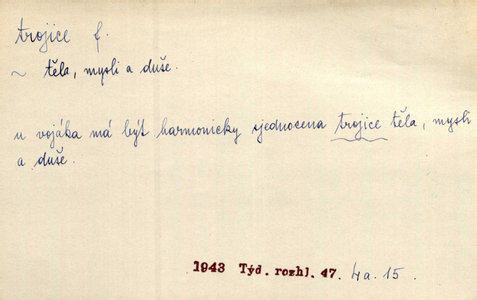 trojice f.
~ těla, mysli a duše.
u vojáka má být harmonicky sjednocena trojice těla, mysli
a duše.
1943 Týd. rozhl. 47. 4a.15.